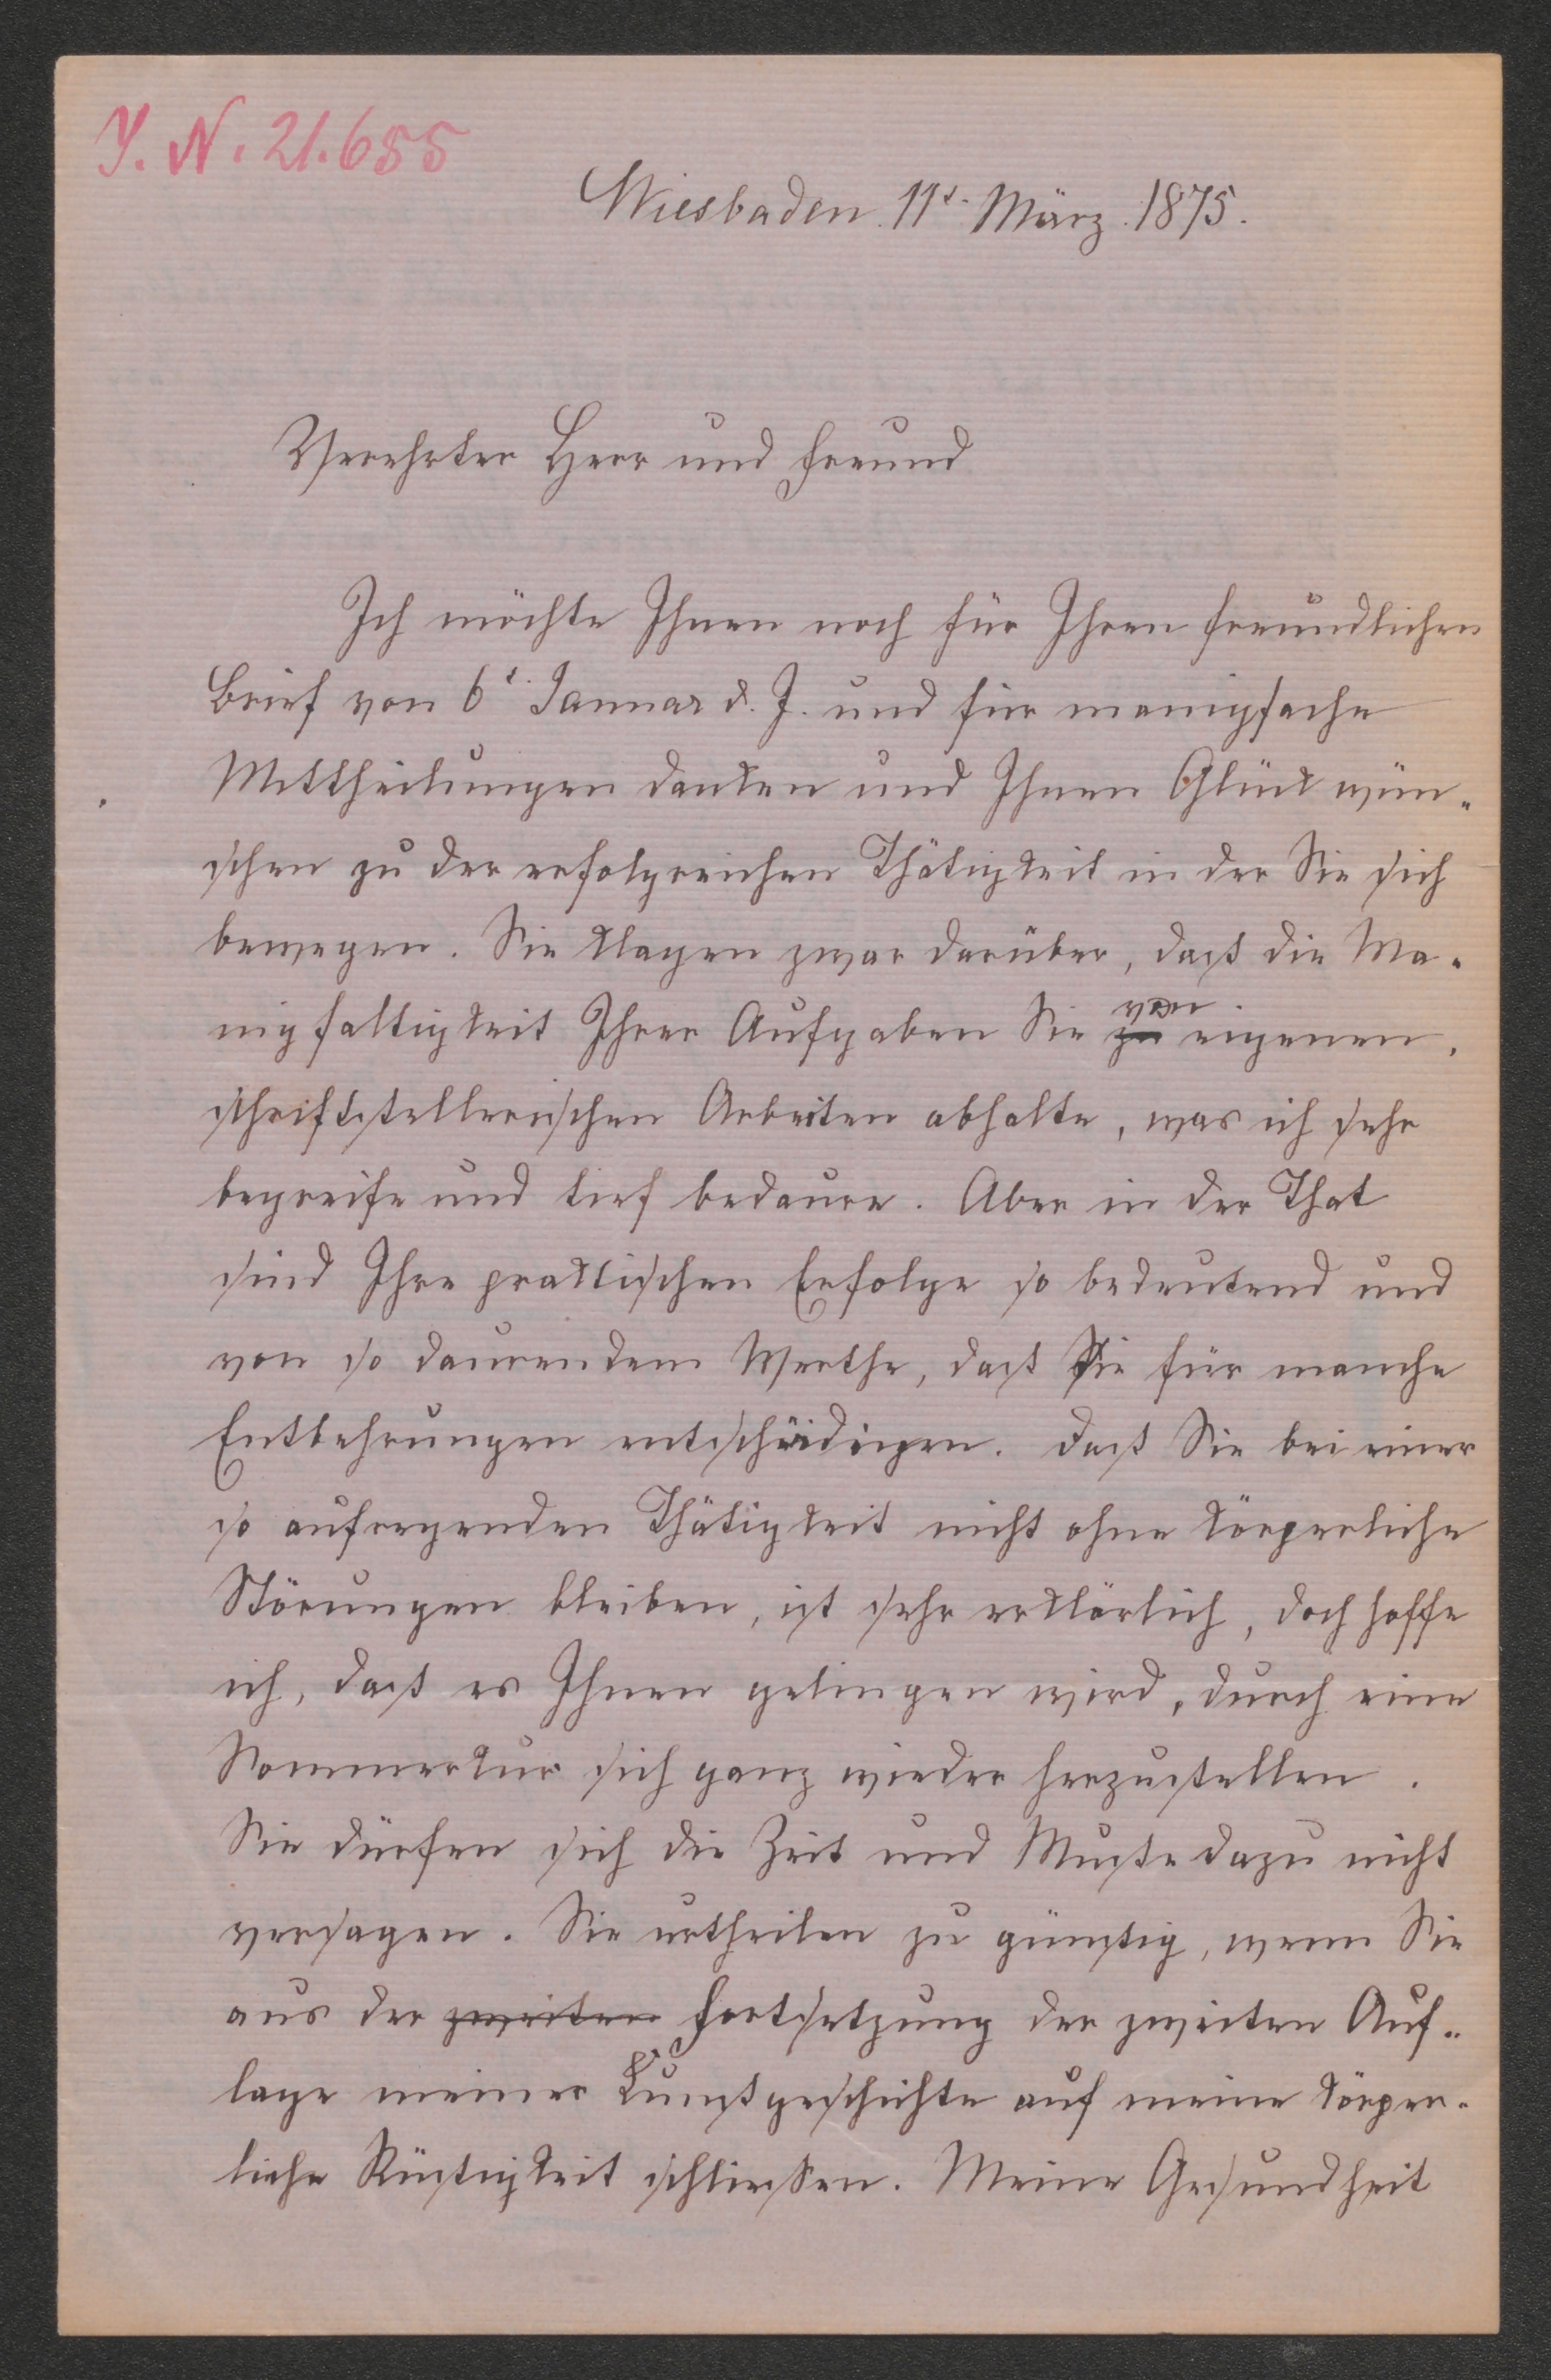 J. N. 21.655
Wiesbaden. 11t. März. 1875.
Verehrter Herr und Freund
Ich möchte Ihnen noch für Ihren freundlichen
Brief von 6t. Januar d. J. und für manigfache
Mittheilungen danken und Ihnen Glück wün-
schen zu der erfolgreichen Thätigkeit in der Sie sich
bewegen. Sie klagen zwar darüber, daß die Ma-
nigfaltigkeit Ihrer Aufgaben Sie zu von eigenen,
schriftstellerischen Arbeiten abhalte, was ich sehr
begreife und tief bedaure. Aber in der That
sind Ihre praktischen Erfolge so bedeutend und
von so daurendem Werthe, daß Sie für manche
Entbehrungen entschädigen. Daß Sie bei einer
so aufregenden Thätigkeit nicht ohne körperliche
Störungen bleiben, ist sehr erklärlich, doch hoffe
ich, daß es Ihnen gelingen wird, durch eine
Sommerkur sich ganz wieder herzustellen.
Sie dürfen sich die Zeit und Muße dazu nicht
versagen. Sie urtheilen zu günstig, wenn Sie
aus der zweiten Fortsetzung der zweiten Auf-
lage meiner Kunstgeschichte auf meine körper-
liche Rüstigkeit schließen. Meine Gesundheit